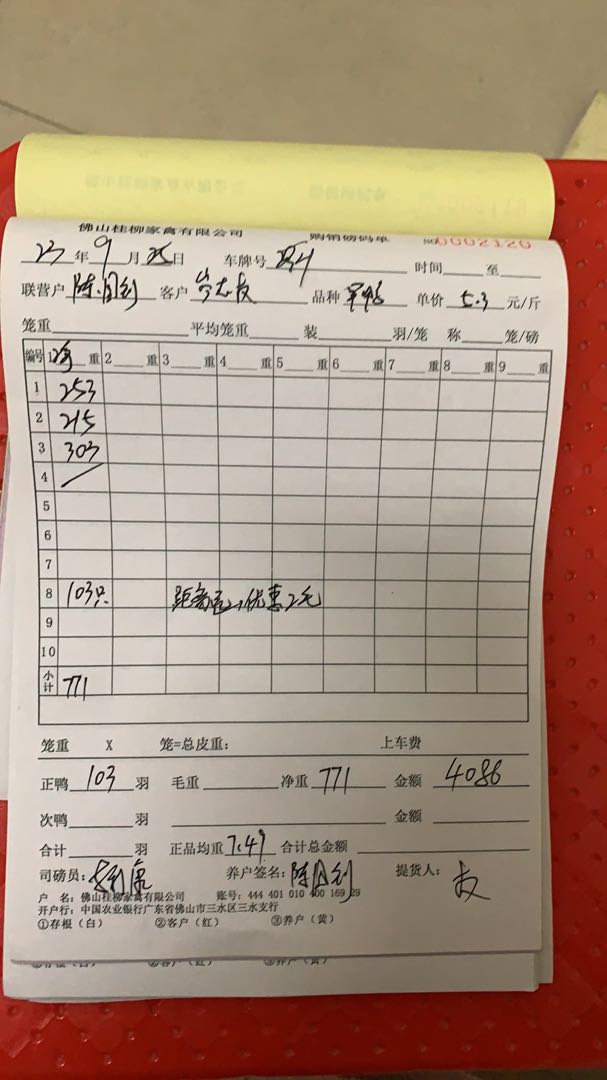 佛山桂柳家禽有限公司 购销磅码单 0002120
23年9月25日 车牌号 时间 至
联营户 陈国剑 客户 岑志友 品种 单价 5.3 元/斤
笼重 平均笼重 装 羽/笼 称 笼/磅
编号 1 重 2 重 3 重 4 重 5 重 6 重 7 重 8 重 9 重
1 253
2 215
3 303
4
5
6
7
8 103只 距离远,优惠2毛
9
10
小计 771
笼重 X 笼=总皮重: 上车费
正鸭 103 羽 毛重 净重 771 金额 4086
次鸭 羽 金额
合计 羽 正品均重 7.49 合计总金额
司磅员: 养户签名: 陈国剑 提货人: 友
户 名: 佛山桂柳家禽有限公司 账号: 444 401 010 400 169 29
开户行: 中国农业银行广东省佛山市三水区三水支行
①存根(白) ②客户(红) ③养户(黄)